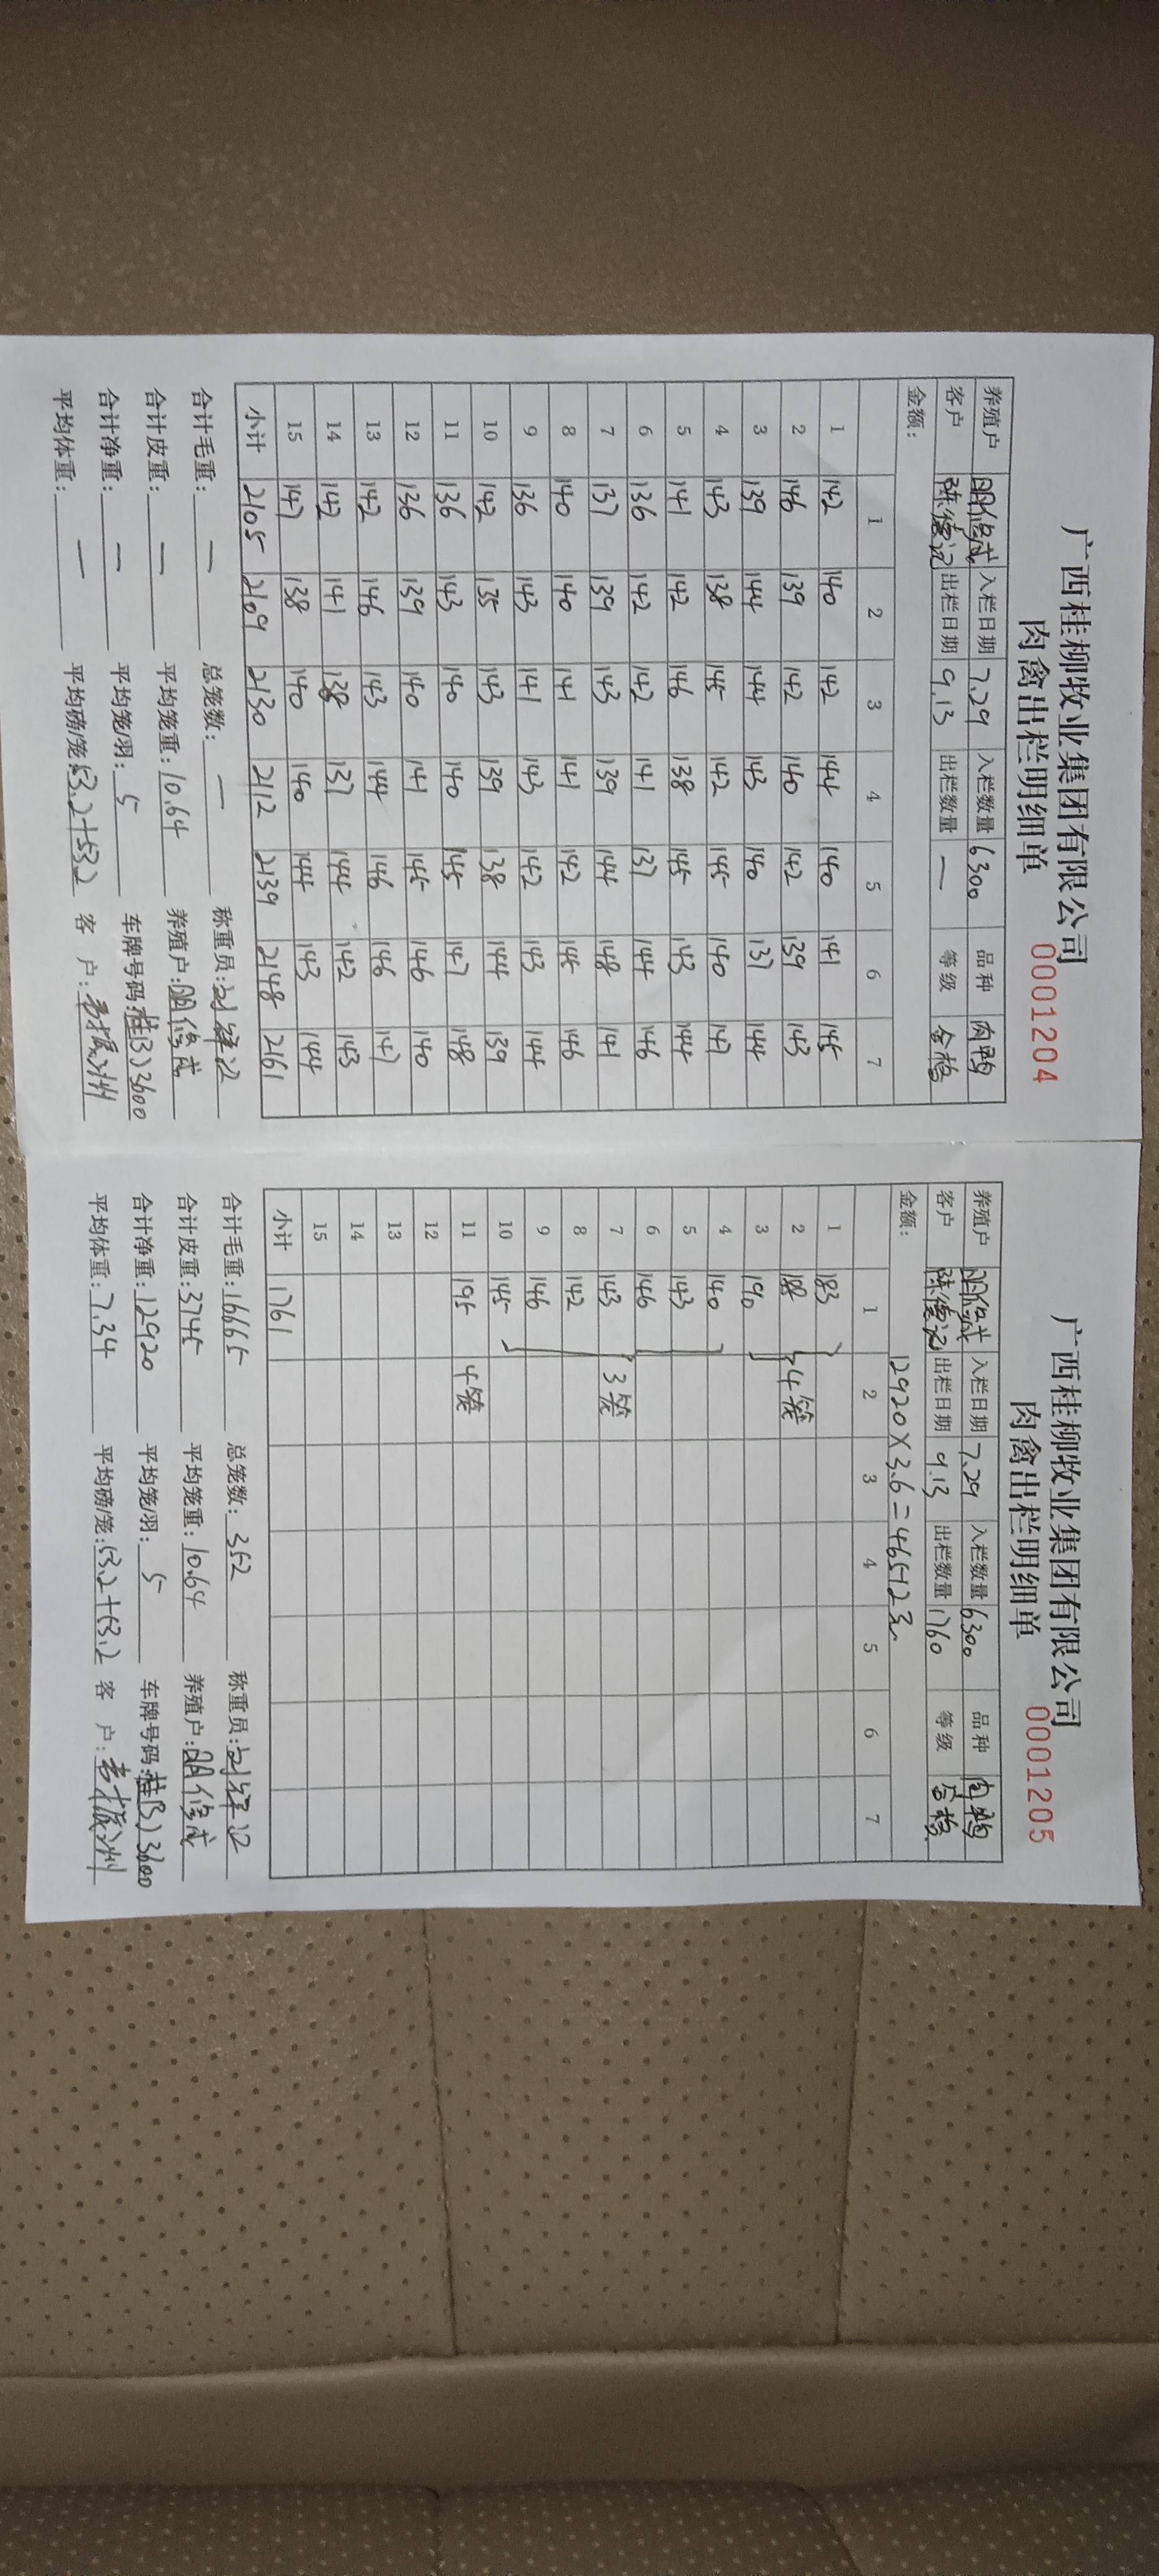 广西桂柳牧业集团有限公司
肉禽出栏明细单 0001204
养殖户 入栏日期 7.29 入栏数量 6300 品种 肉鸭
客户 陈德记 出栏日期 9.13 出栏数量 — 等级 合格
金额:
1 2 3 4 5 6 7
1 142 140 142 144 140 141 145
2 146 139 142 140 142 139 143
3 139 144 144 143 140 137 144
4 143 138 145 142 145 140 147
5 141 142 146 138 145 143 144
6 136 142 142 141 137 144 146
7 137 139 143 139 144 148 141
8 140 140 141 141 142 144 146
9 136 143 141 143 142 143 144
10 142 135 143 139 138 144 139
11 136 143 140 140 145 147 148
12 136 139 140 141 145 146 140
13 142 146 143 144 146 146 147
14 142 141 138 137 144 142 143
15 147 138 140 140 144 143 144
小计 2105 2109 2130 2112 2139 2148 2161
合计毛重: — 总笼数: — 称重员:
合计皮重: — 平均笼重: 10.64 养殖户:
合计净重: — 平均笼/羽: 5 车牌号码: 桂B)3600
平均体重: — 平均磅/笼: 53.2+53.2 客 户:
广西桂柳牧业集团有限公司
肉禽出栏明细单 0001205
养殖户 入栏日期 7.29 入栏数量 6300 品种 肉鸭
客户 陈德记 出栏日期 9.13 出栏数量 1760 等级 合格
金额: 12920×3.6=46512元
1 2 3 4 5 6 7
1 183
2 188 4笼
3 190
4 140
5 143
6 146
7 143 3笼
8 142
9 146
10 145
11 195 4笼
12
13
14
15
小计 1761
合计毛重: 16665 总笼数: 352 称重员:
合计皮重: 3745 平均笼重: 10.64 养殖户:
合计净重: 12920 平均笼/羽: 5 车牌号码: 桂B)3600
平均体重: 7.34 平均磅/笼: 53.2+53.2 客 户: